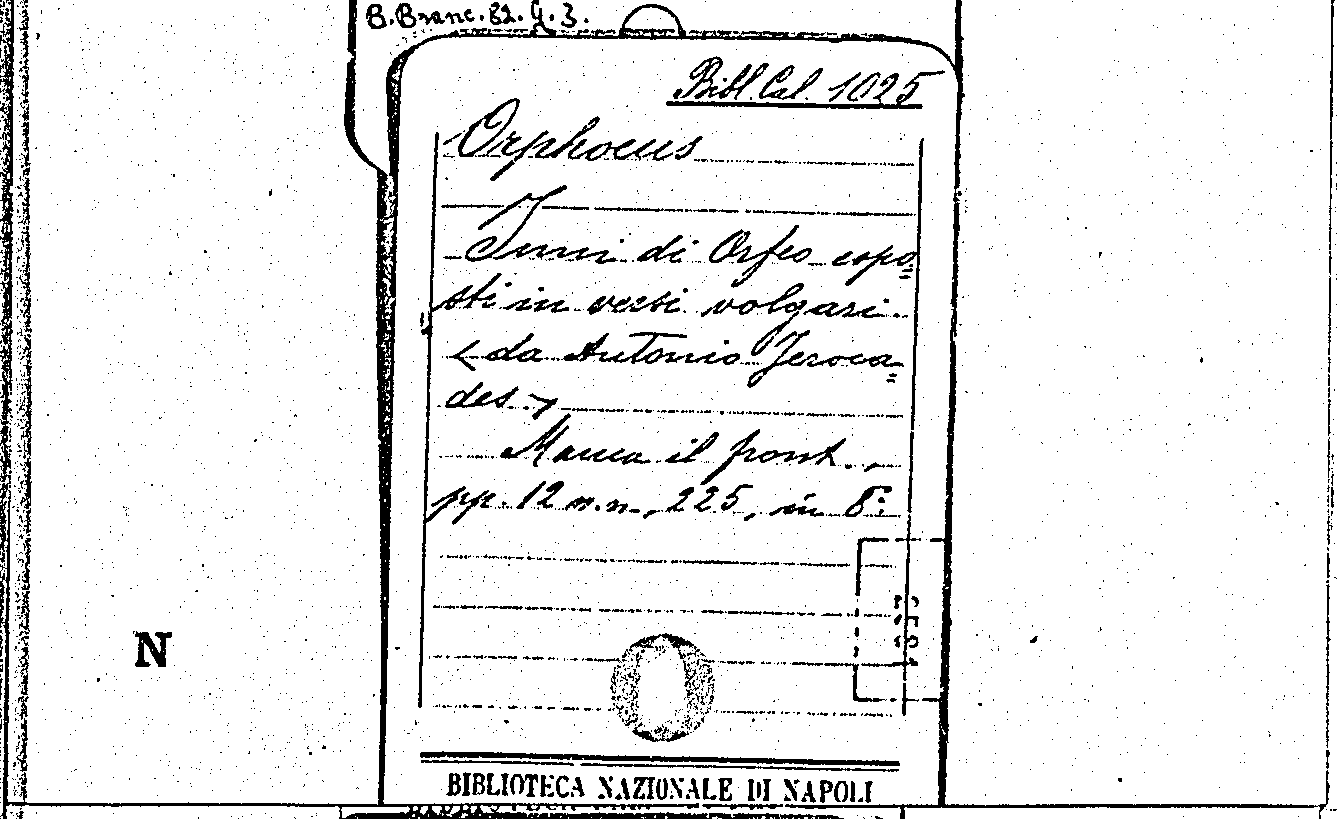 B. Branc. 82. G. 3.
Bibl. Cal. 1025
Orphoeus
Inni di Orfeo espo=
sti in versi volgari.
<da Antonio Jeroca=
des>
Manca il front.,
pp. 12 n.n., 225, in 8º.
N
BIBLIOTECA NAZIONALE DI NAPOLI